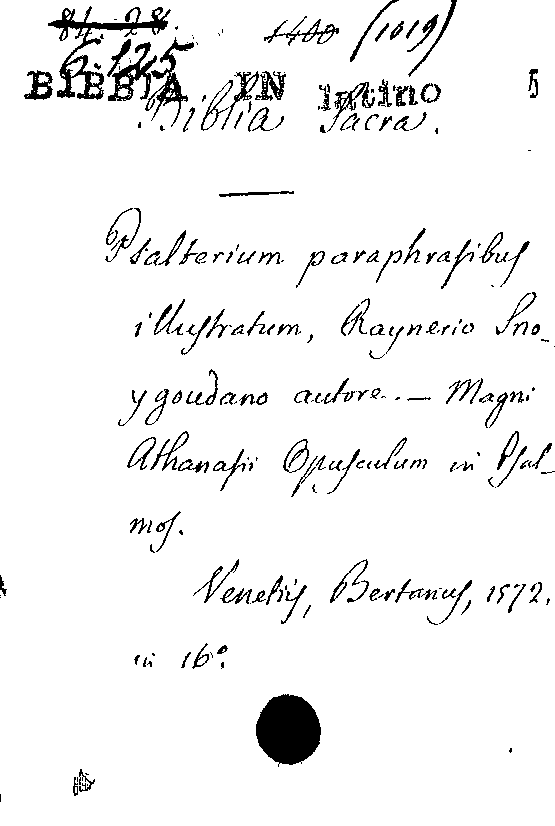 84. 28. 1400 (1019)
6. 125
BIBBIA IN latino 5
Biblia Sacra.
Psalterium paraphrasibus
illustratum, Raynerio Sno-
ygoudano autore. — Magni
Athanasii Opusculum in Psal-
mos.
Venetiis, Bertanus, 1572.
in 16°.